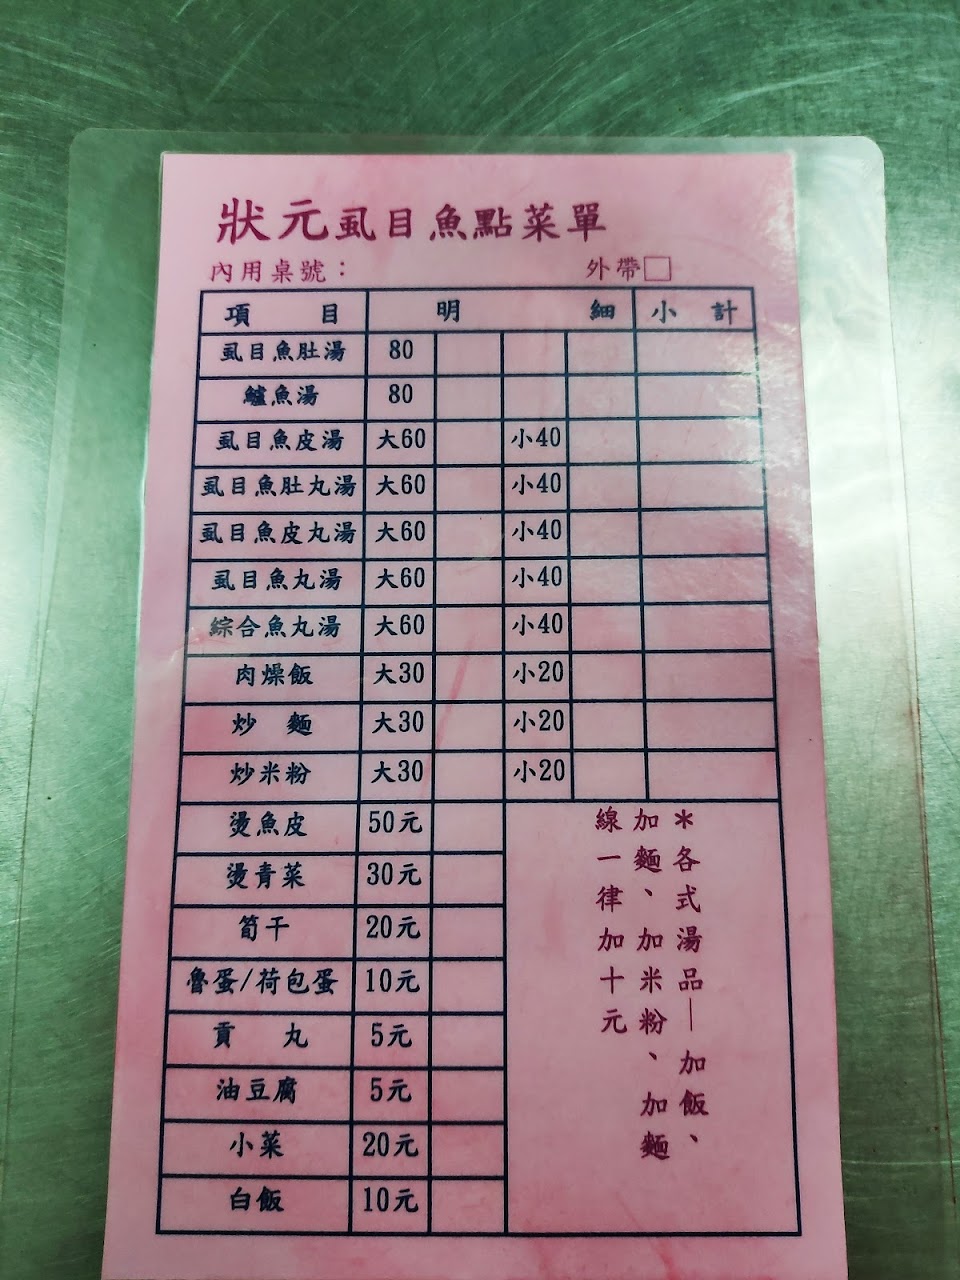 狀元虱目魚點菜單
內用桌號： 外帶□
項目 明細 小計
虱目魚肚湯 80
鱸魚湯 80
虱目魚皮湯 大60 小40
虱目魚肚丸湯 大60 小40
虱目魚皮丸湯 大60 小40
虱目魚丸湯 大60 小40
綜合魚丸湯 大60 小40
肉燥飯 大30 小20
炒麵 大30 小20
炒米粉 大30 小20
燙魚皮 50元
燙青菜 30元
筍干 20元
魯蛋/荷包蛋 10元
貢丸 5元
油豆腐 5元
小菜 20元
白飯 10元
＊各式湯品—加飯、
加麵、加米粉、加麵
線一律加十元